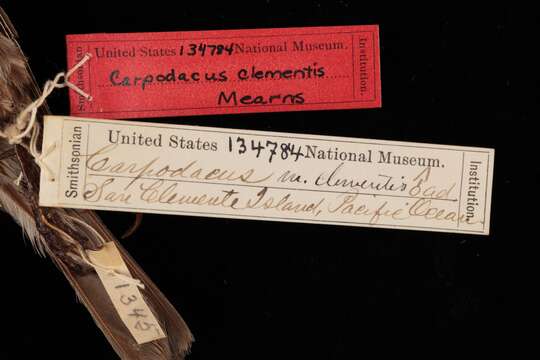 Smithsonian
United States 134784 National Museum.
Carpodacus clementis
Mearns
Institution.
Smithsonian
United States 134784 National Museum.
Carpodacus m. clementis ♂ ad
San Clemente Island, Pacific Ocean
Institution
1345